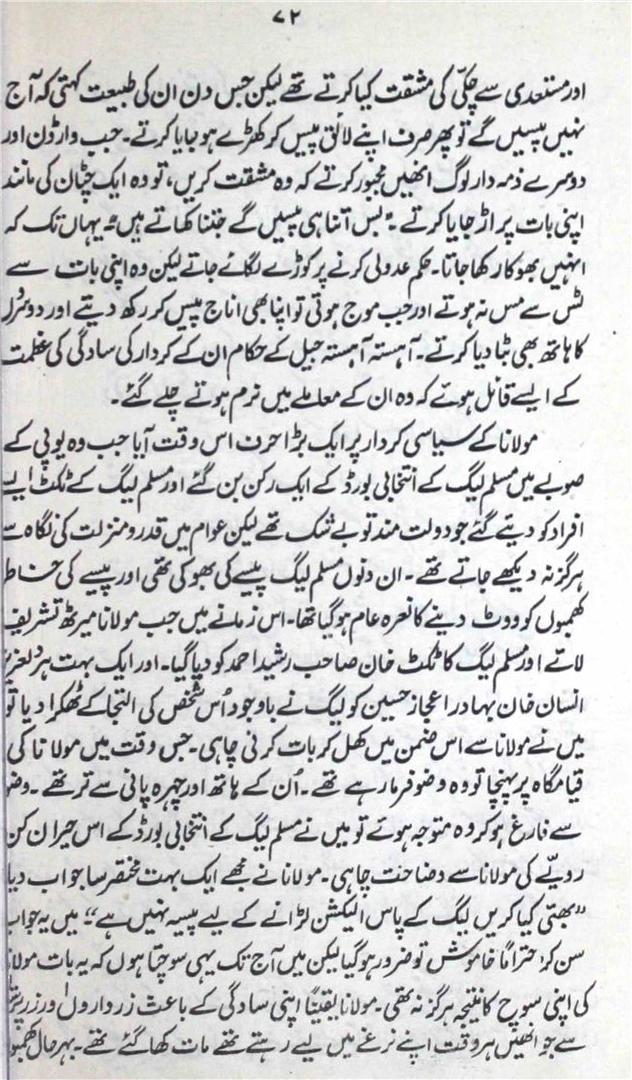 ۷۲
اور مستعدی سے چکّی کی مشقت کیا کرتے تھے لیکن جس دن ان کی طبیعت کہتی کہ آج
نہیں پسیں گے تو پھر صرف اپنے لائق پیس کر کھڑے ہو جایا کرتے۔ جب وارڈن اور
دوسرے ذمہ دار لوگ انھیں مجبور کرتے کہ وہ مشقت کریں، تو وہ ایک چٹان کی مانند
اپنی بات پر اڑ جایا کرتے۔ "بس اتنا ہی پسیں گے جتنا کھاتے ہیں"۔ یہاں تک کہ
انہیں بھوکا رکھا جاتا۔ حکم عدولی کرنے پر کوڑے لگائے جاتے لیکن وہ اپنی بات سے
ٹس سے مس نہ ہوتے اور جب موج ہوتی تو اپنا بھی اناج پیس کر رکھ دیتے اور دوسروں
کا ہاتھ بھی بٹا دیا کرتے۔ آہستہ آہستہ جیل کے حکام ان کے کردار کی سادگی کی عظمت
کے ایسے قائل ہوئے کہ وہ ان کے معاملے میں نرم ہوتے چلے گئے۔
مولانا کے سیاسی کردار پر ایک بڑا حرف اس وقت آیا جب وہ یو پی کے
صوبے میں مسلم لیگ کے انتخابی بورڈ کے ایک رکن بن گئے اور مسلم لیگ کے ٹکٹ ایسے
افراد کو دیئے گئے جو دولت مند تو بے شک تھے لیکن عوام میں قدر و منزلت کی نگاہ سے
ہرگز نہ دیکھے جاتے تھے۔ ان دنوں مسلم لیگ پیسے کی بھوکی تھی اور پیسے کی خاطر
کھمبوں کو ووٹ دینے کا نعرہ عام ہو گیا تھا۔ اس زمانے میں جب مولانا میرٹھ تشریف
لائے اور مسلم لیگ کا ٹکٹ خان صاحب رشید احمد کو دیا گیا۔ اور ایک بہت ہر دلعزیز
انسان خان بہادر اعجاز حسین کو لیگ نے باوجود اُس شخص کی التجا کے ٹھکرا دیا تو
میں نے مولانا سے اس ضمن میں کھل کر بات کرنی چاہی۔ جس وقت میں مولانا کی
قیام گاہ پر پہنچا تو وہ وضو فرما رہے تھے۔ اُن کے ہاتھ اور چہرہ پانی سے تر تھے۔ وضو
سے فارغ ہو کر وہ متوجہ ہوئے تو میں نے مسلم لیگ کے انتخابی بورڈ کے اس حیران کن
رویّے کی مولانا سے وضاحت چاہی۔ مولانا نے مجھے ایک بہت مختصر سا جواب دیا
"بھئی کیا کریں لیگ کے پاس الیکشن لڑانے کے لیے پیسہ نہیں ہے"؛ میں یہ جواب
سن کر احتراماً خاموش تو ضرور ہو گیا لیکن میں آج تک یہی سوچتا ہوں کہ یہ بات مولانا
کی اپنی سوچ کا نتیجہ ہرگز نہ تھی۔ مولانا یقیناً اپنی سادگی کے باعث زرداروں اور
سے جو انھیں ہر وقت اپنے نرغے میں لیے رہتے تھے مات کھا گئے تھے۔ بہرحال